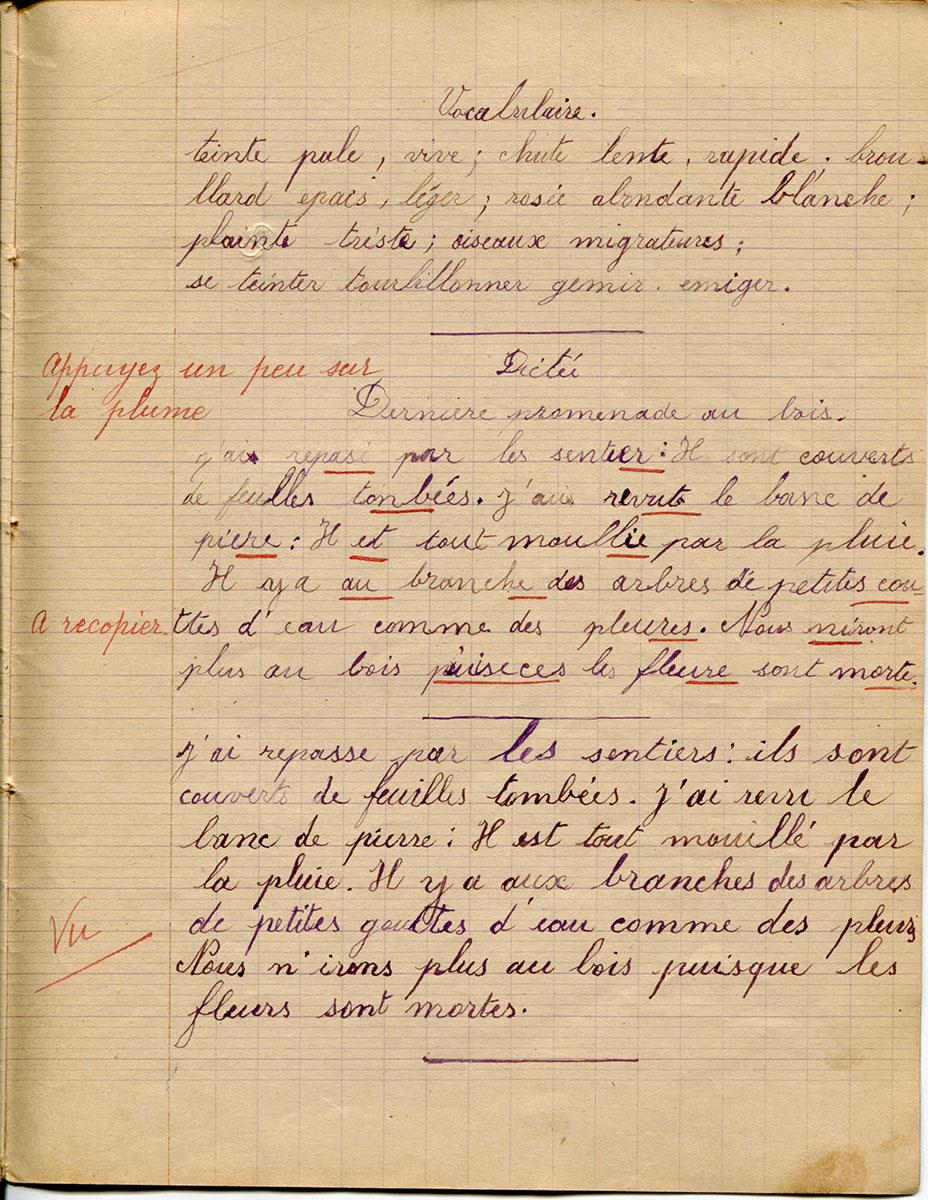 Vocabulaire.
teinte pale, vive; chute lente, rapide. brou-
llard epais, léger; rosée abondante blanche;
plainte triste; oiseaux migrateures;
se teinter tourbillonner gemir. emiger.
Appuyez un peu sur
la plume
Dictée
Dernière promenade au bois.
j'ai repasé par les sentier: Il sont couverts
de feulles tonbées. j'ais revut le banc de
pière: Il et tout moullie par la pluie.
Il y a au branche des arbres de petites cou-
A recopier
ttes d'eau comme des pleures. Nous niront
plus au bois puiseces les fleure sont morte.
j'ai repasse par les sentiers: ils sont
couverts de feuilles tombées. J'ai revu le
banc de pierre: Il est tout mouillé par
la pluie. Il y a aux branches des arbres
de petites gouttes d'eau comme des pleurs
Vu
Nous n'irons plus au bois puisque les
fleurs sont mortes.